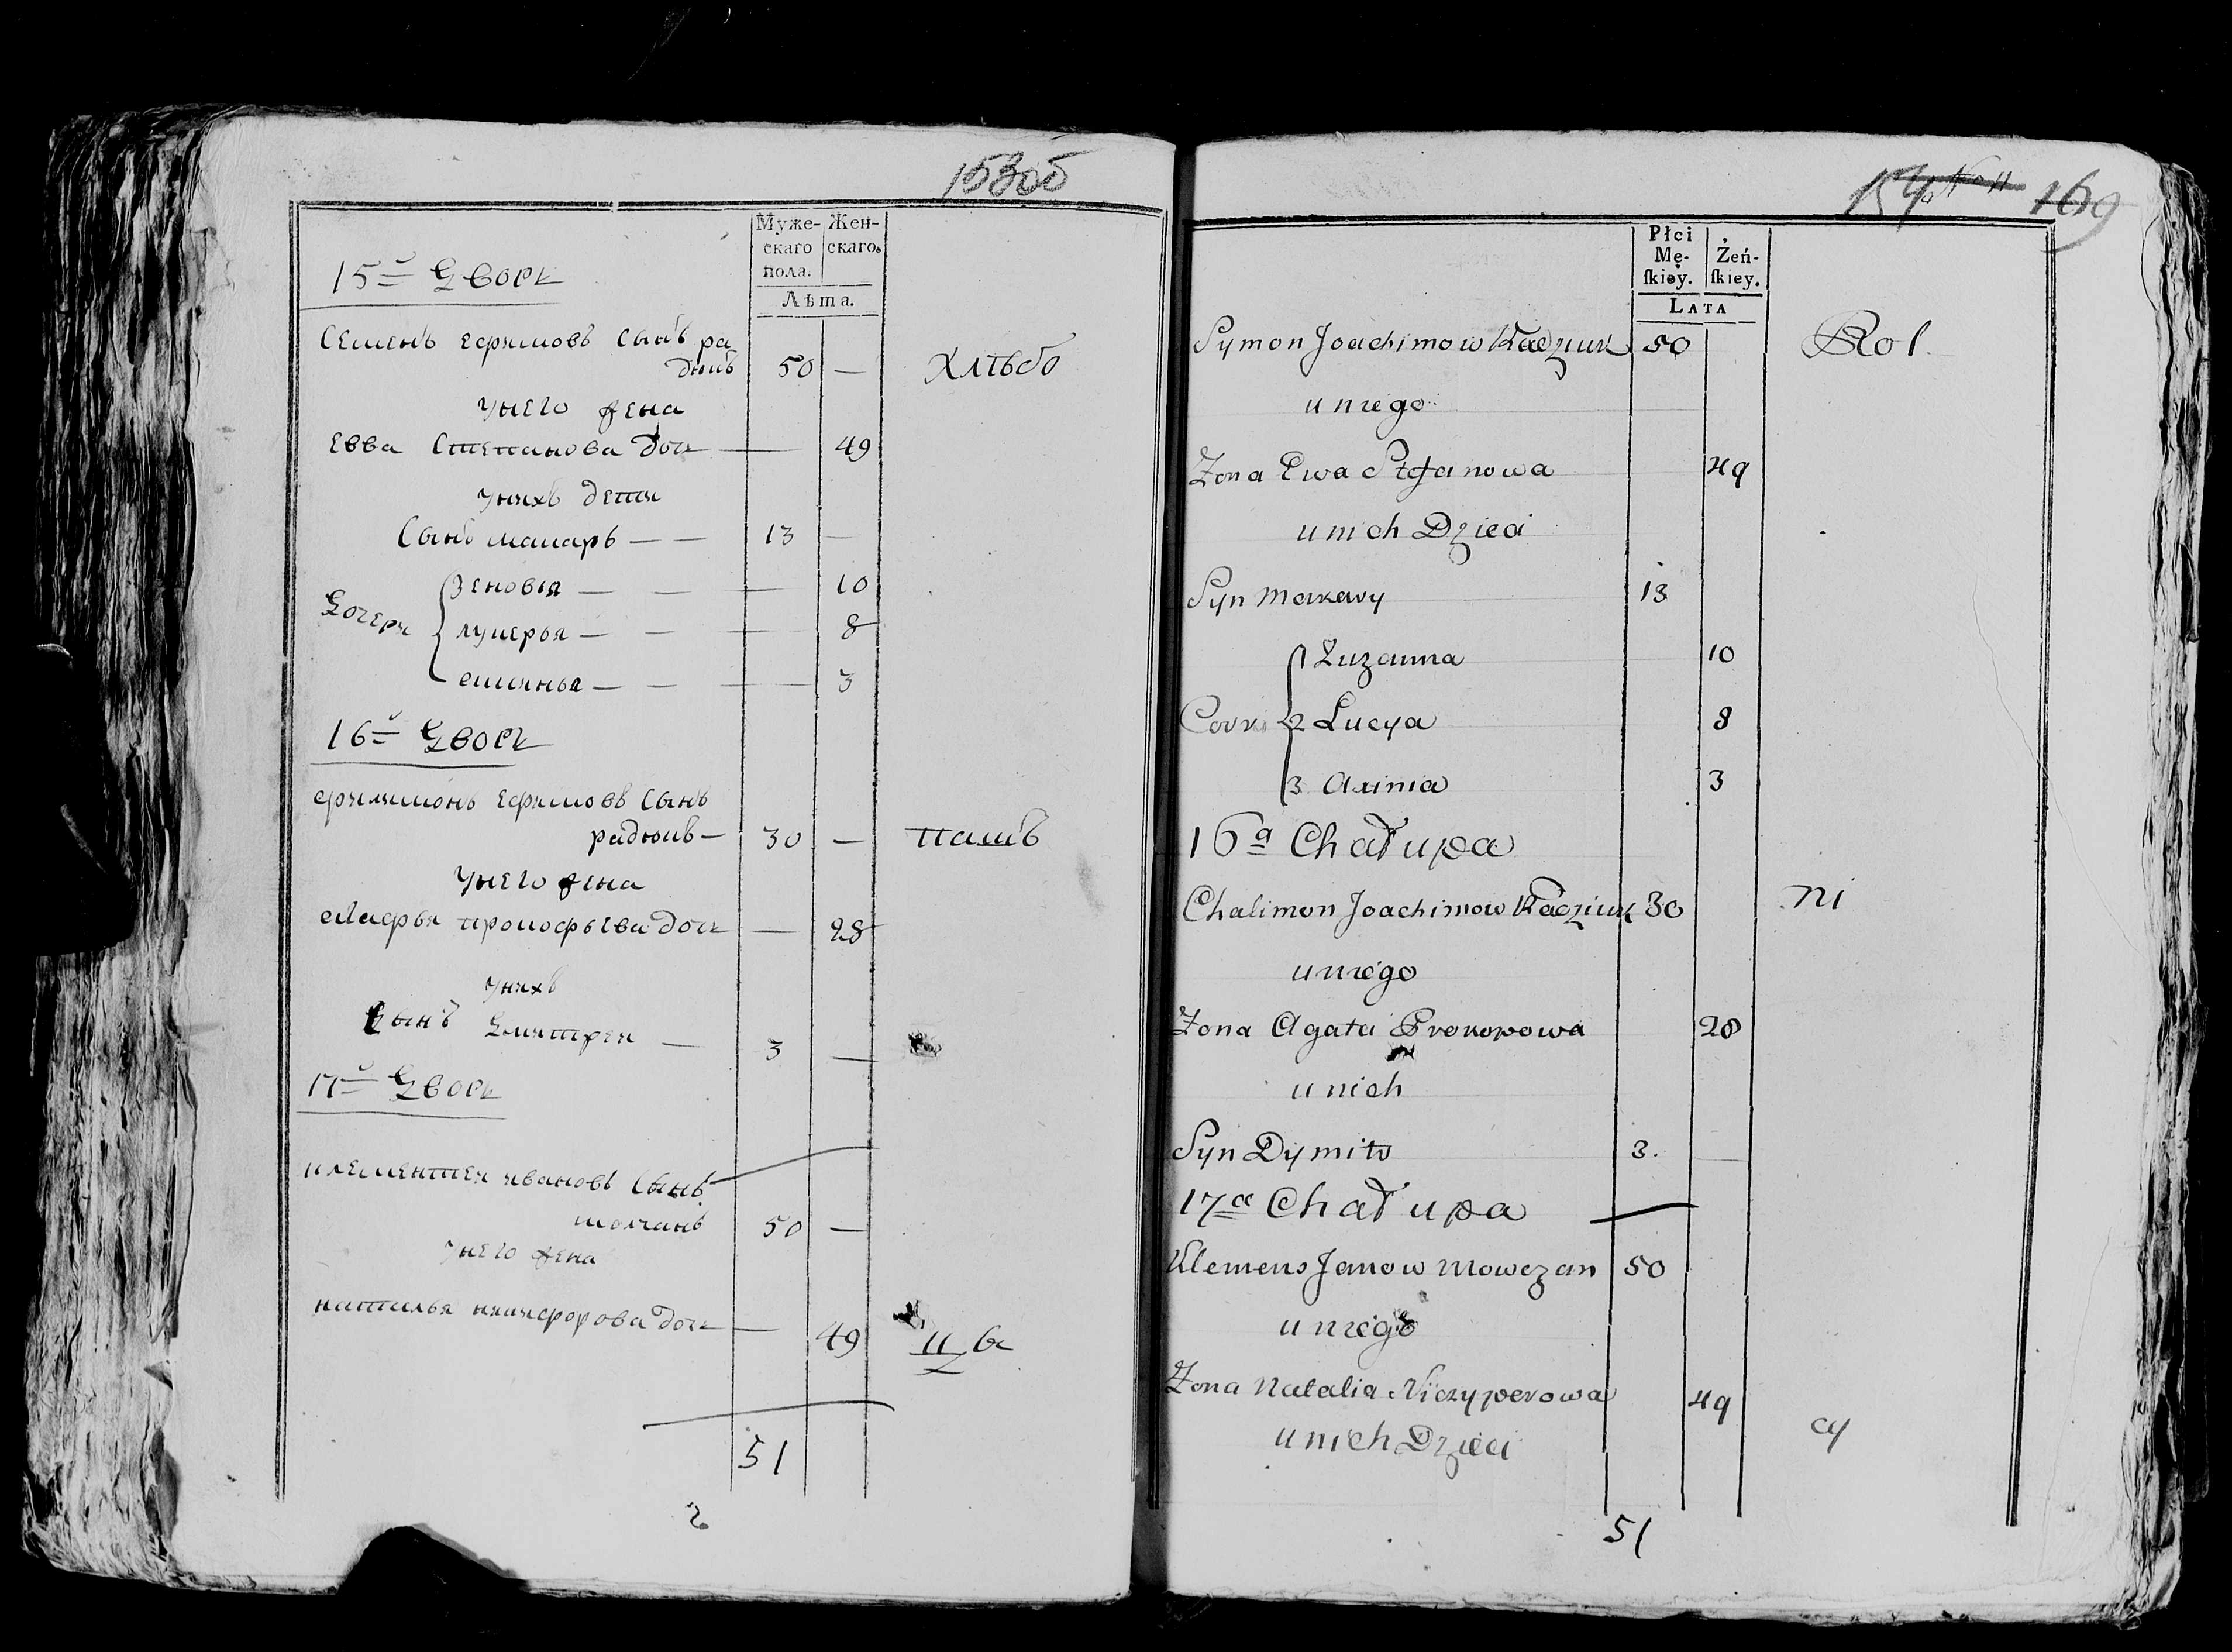 153об
Муже-
скаго
пола.
Жен-
скаго.
Лѣта.
15й Дворъ
Семенъ ефимовъ сынъ ра
дюкъ 50 — хлѣбо
унего жена
евва степанова дочь — 49
унихъ дети
сынъ макаръ — — 13 —
Дочери
зеновья — — — 10
лукерья — — — 8
ксинья — — — 3
16й Дворъ
филимонъ ефимовъ сынъ
радюкъ — 30 — пашъ
унего жена
агафья прокофьева дочь — 28
унихъ
сынъ Дмитреи — 3 —
17й Дворъ
клементеи ивановъ сынъ
молчанъ 50 —
унего жена
наталья никифорова дочь — 49
51
2
154 169
Płci
Mę-
ſkiey.
Żeń-
ſkiey.
LATA
Symon Joachimow Radziuk 50 Rol
u niego
Żona Ewa Stefanowa 49
u nich Dzieci
Syn Makary 13
1 Zuzanna 10
Corki 2 Lucya 8
3 Axinia 3
16a Chałupa
Chalimon Joachimow Radziuk 30 ni
u niego
Żona Agata Prokopowa 28
u nich
Syn Dymitr 3.
17a Chałupa
Klemens Janow Mowczan 50
u niego
Żona Natalia Niczyperowa 49 cy
u nich Dzieci
51